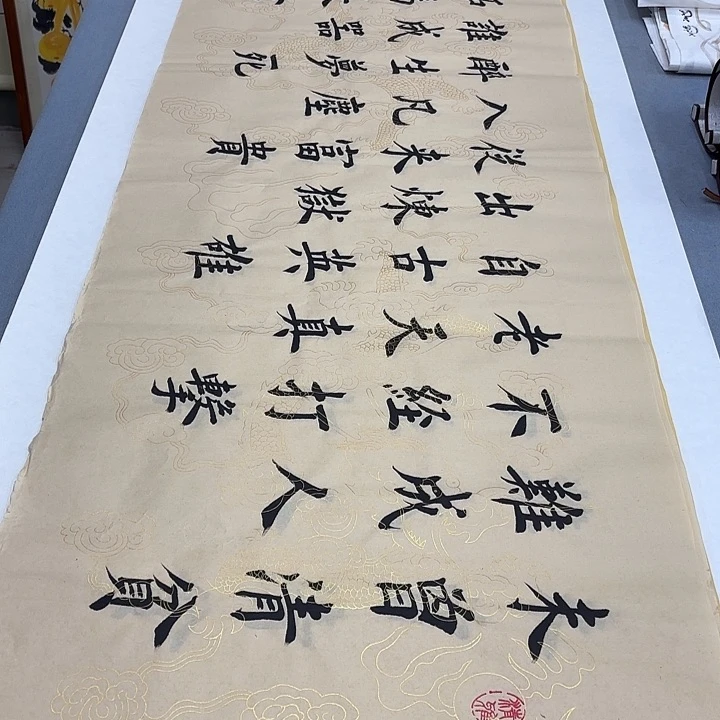 未曾清貧
難成人
不經打擊
老天真
自古英雄
出煉獄
從來富貴
入凡塵
醉生夢死
誰成器